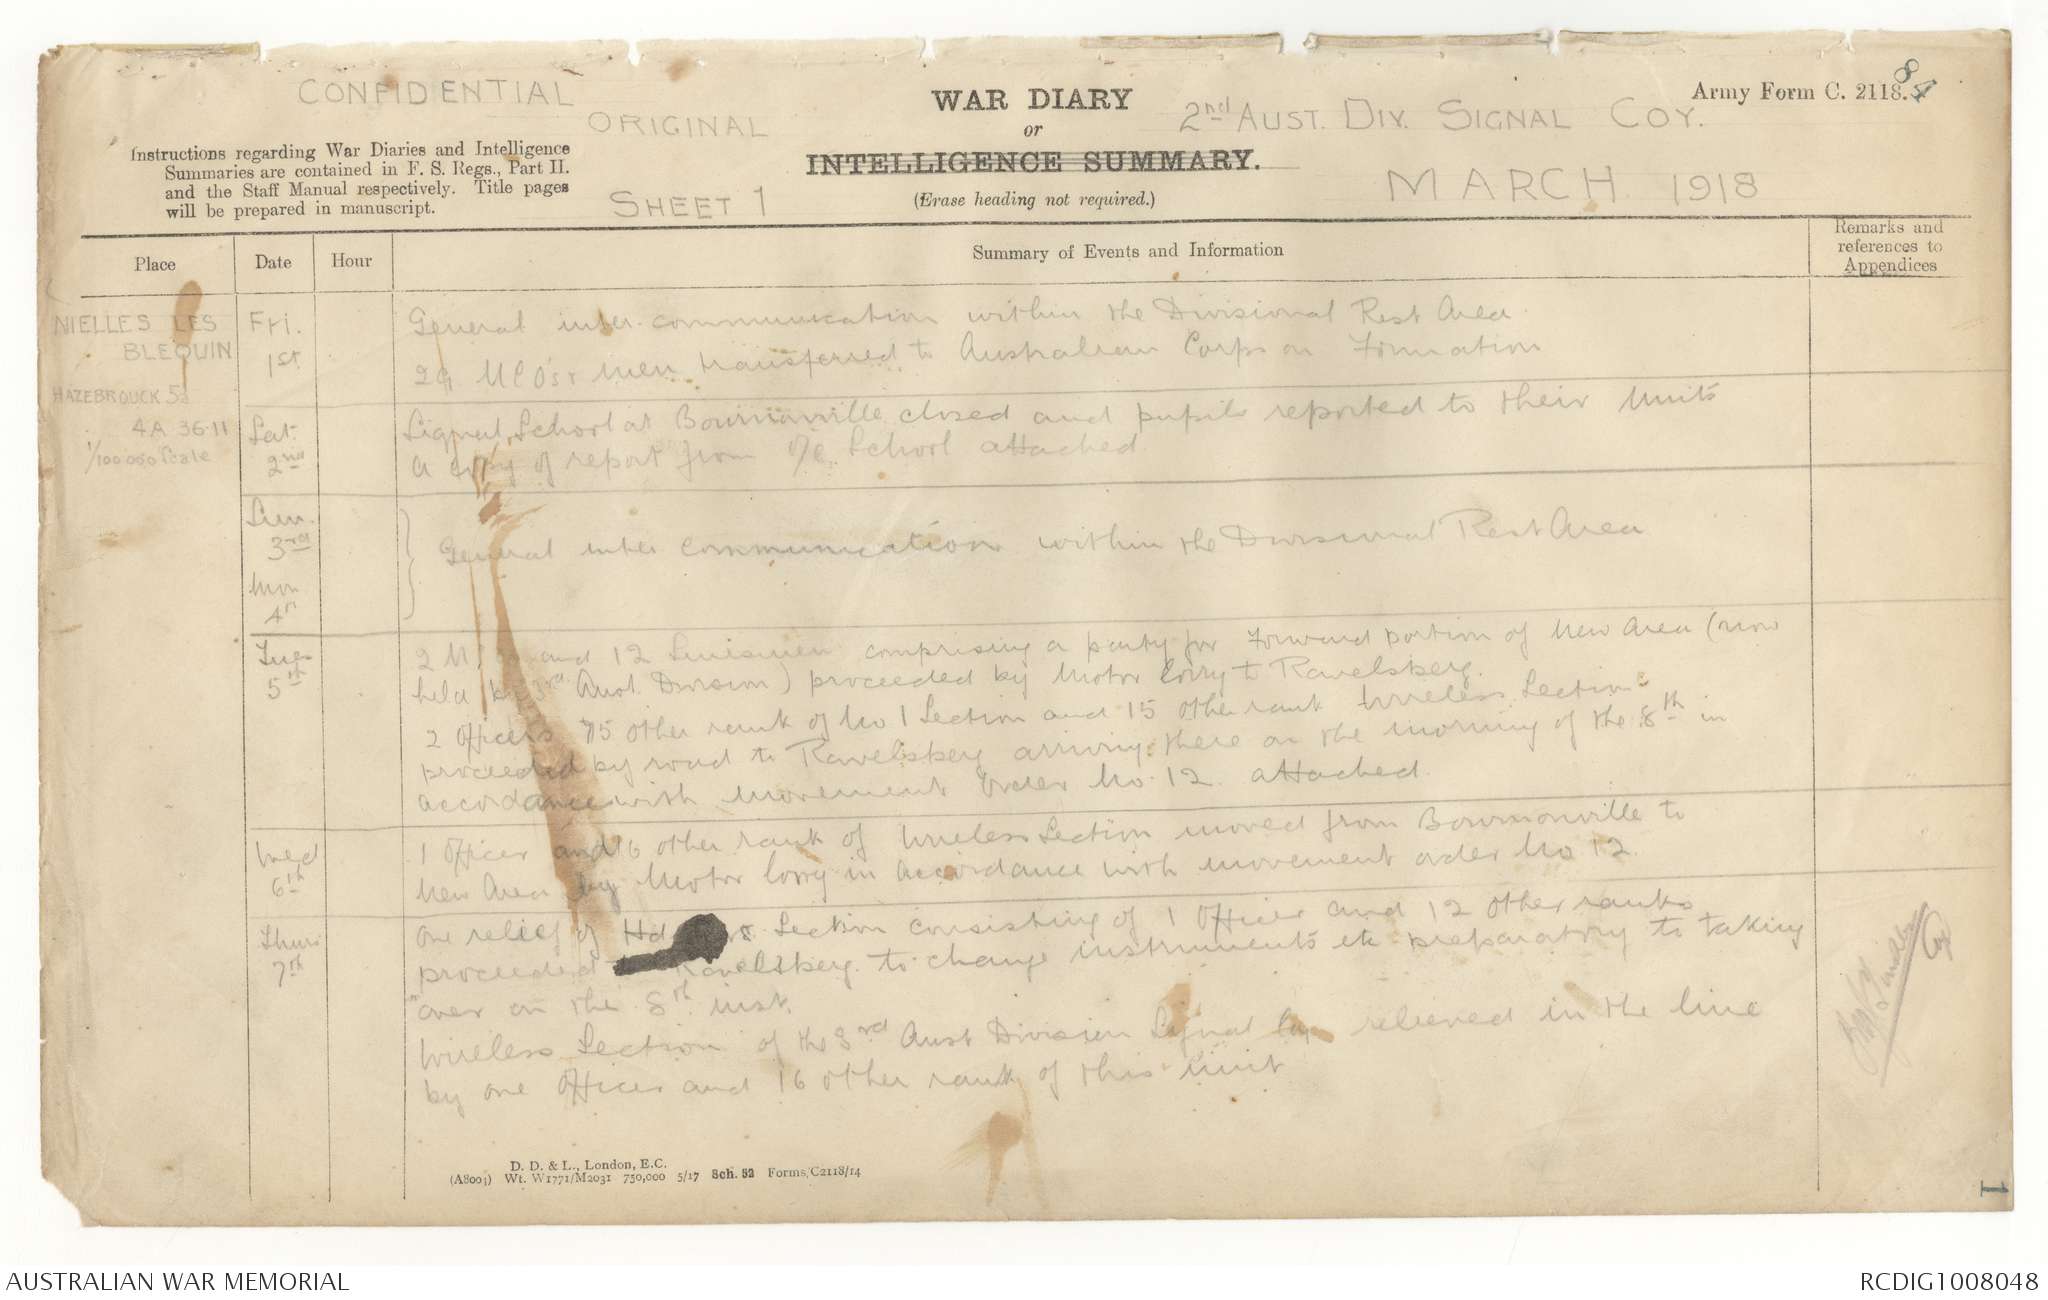 CONFIDENTIAL
ORIGINAL
SHEET 1
WAR DIARY
or
INTELLIGENCE SUMMARY.
(Erase heading not required.)
2nd AUST. DIV. SIGNAL COY.
MARCH 1918
Army Form C. 2118.
84
Instructions regarding War Diaries and Intelligence
Summaries are contained in F. S. Regs., Part II.
and the Staff Manual respectively. Title pages
will be prepared in manuscript.
Place
Date
Hour
Summary of Events and Information
Remarks and
references to
Appendices
NIELLES LES
BLEQUIN
HAZEBROUCK 5a
4A 36.11
1/100000 Scale
Fri.
1st
General inter. communication within the Divisional Rest Area
29 NCOs & men transferred to Australian Corps on Formation
Sat.
2nd
Signal School at Bournonville closed and pupils reported to their Units
A copy of report from O/C School attached
Sun.
3rd
Mon
4th
General inter communication within the Divisional Rest Area
Tues
5th
2 and 12 Linismen comprising a party for Forward portion of New Area (now
held by 3rd Aust. Division) proceeded by Motor lorry to Ravelsberg.
2 Officers 75 other rank of No 1 Section and 15 other rank Wireless Section
proceeded by road to Ravelsberg arriving there on the morning of the 8th in
accordance with movement Order No. 12 attached.
Wed
6th
1 Officer and 16 other rank of Wireless Section moved from Bournonville to
New Area by Motor lorry in accordance with movement order No 12.
Thurs
7th
One relief of Section consisting of 1 Officer and 12 other ranks
proceeded Ravelsberg to change instruments etc preparatory to taking
over on the 8th inst.
Wireless Section of the 3rd Aust Division Signal Coy relieved in the line
by one Officer and 16 other rank of this Unit
D. D. & L., London, E.C.
(A8001) Wt. W1771/M2031 750,000 5/17 Sch. 52 Forms/C2118/14
1
AUSTRALIAN WAR MEMORIAL
RCDIG1008048